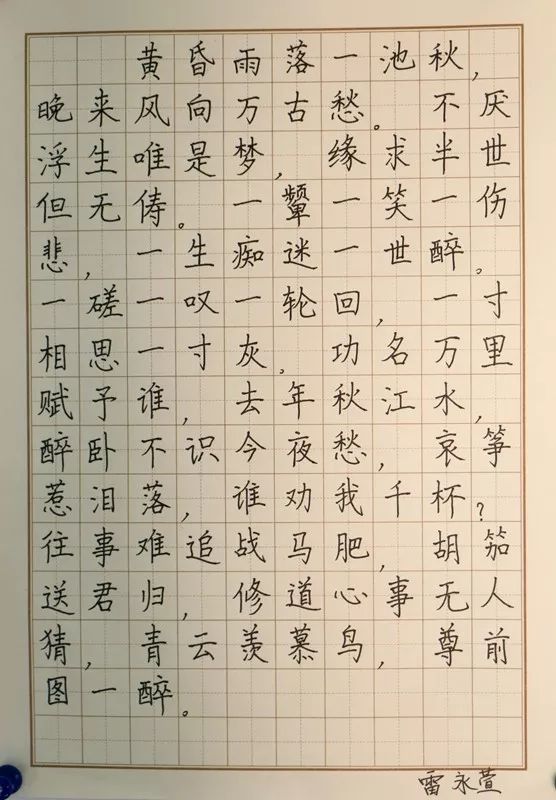 黄昏雨落一池秋，
晚来风向万古愁。不厌
浮生唯是梦，缘求半世
但无俦。一颦一笑一伤
悲，一生痴迷一世醉。
一磋一叹一轮回，一寸
相思一寸灰。功名万里
赋予谁，去年秋江水，
醉卧不识今夜愁，哀筝
惹泪落，谁劝我千杯？
往事难追战马肥，胡笳
送君归，修道心事无人
猜，青云羡慕鸟，尊前
图一醉。
雷永萱